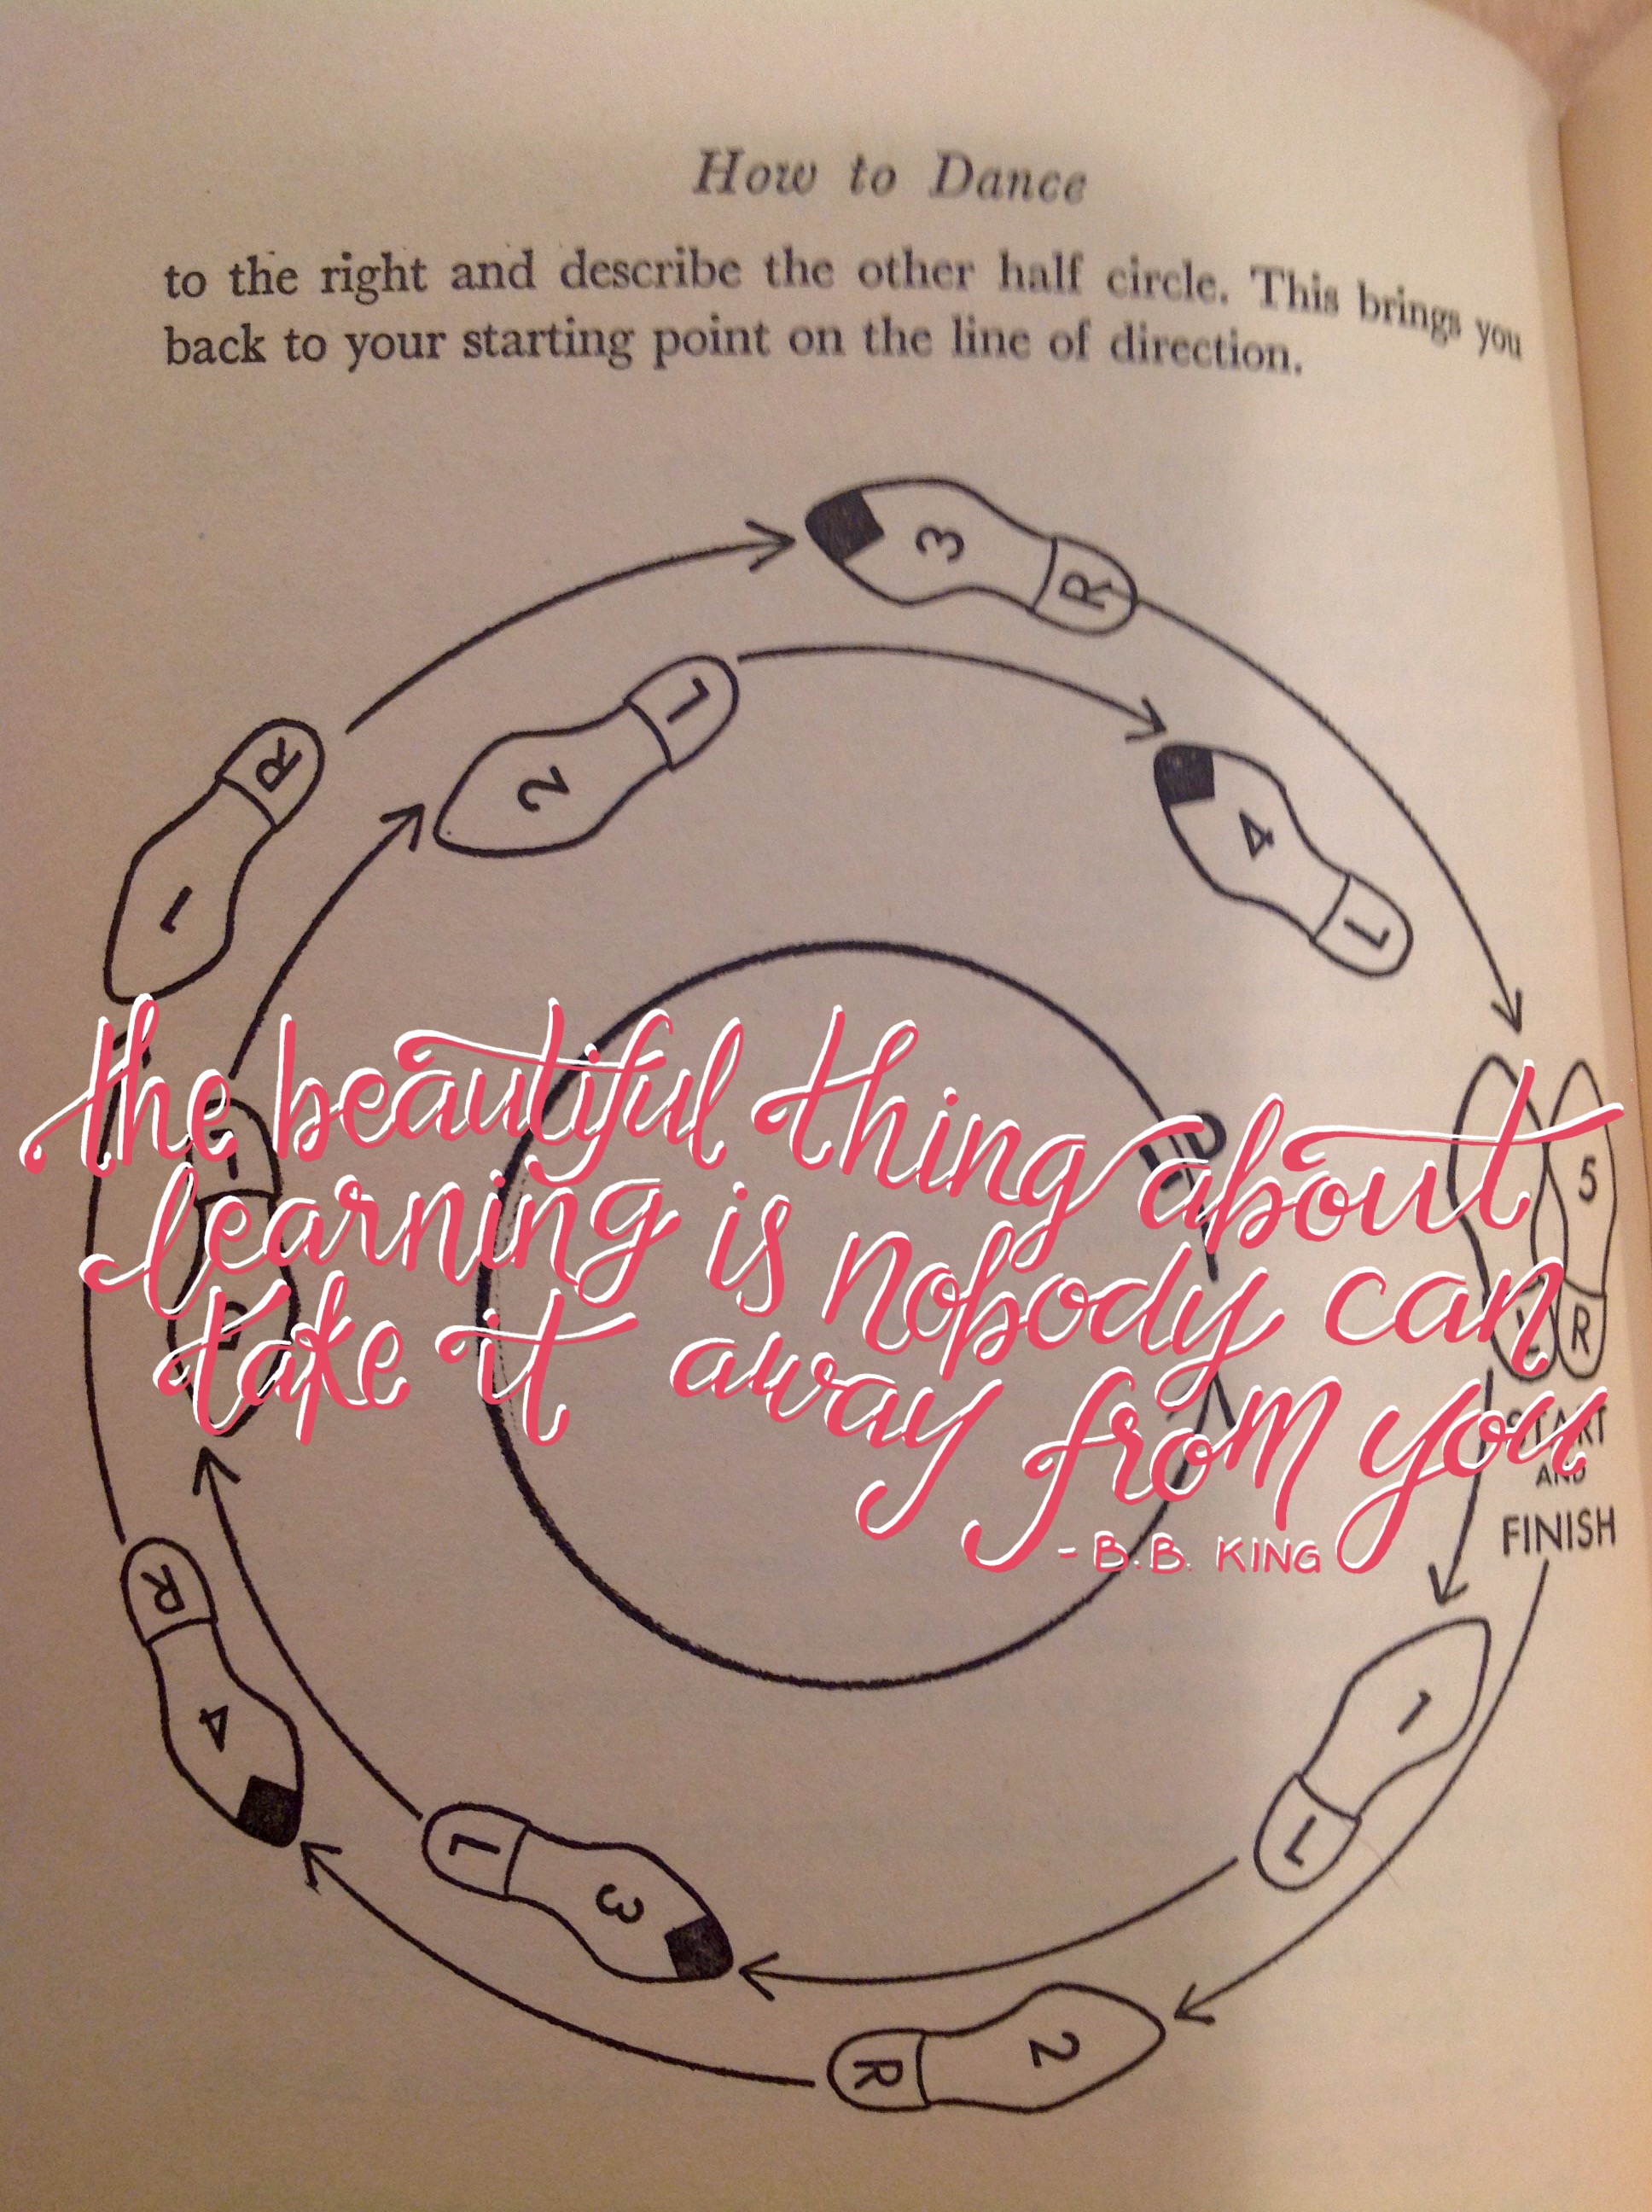 How to Dance
to the right and describe the other half circle. This brings you
back to your starting point on the line of direction.
3
R
L
2
R
1
4
L
the beautiful thing about
learning is nobody can
take it away from you
- B.B. KING
L
5
L
R
START
AND
FINISH
R
4
1
L
L
3
2
R